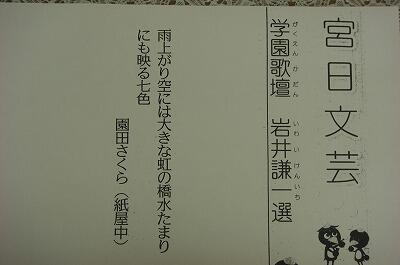 宮日文芸
学園歌壇 岩井謙一選
がくえんかだん いわいけんいち
雨上がり空には大きな虹の橋水たまり
にも映る七色
園田さくら(紙屋中)